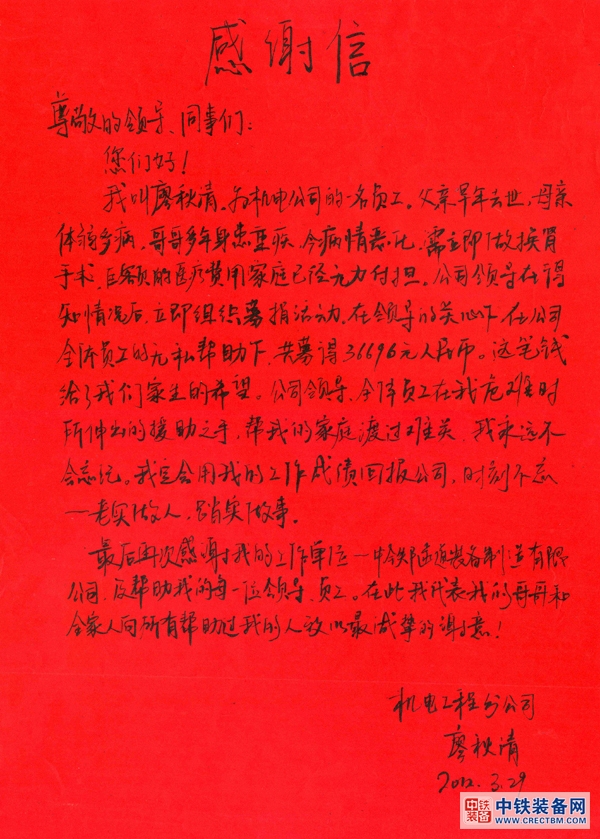 感谢信
尊敬的领导、同事们:
您们好!
我叫廖秋清,为机电公司的一名员工。父亲早年去世,母亲
体弱多病,哥哥多年身患重疾,今病情恶化,需立即做换肾
手术,巨额的医疗费用家庭已经无力付担。公司领导在得
知情况后,立即组织募捐活动,在领导的关心下,在公司
全体员工的无私帮助下,共募得36696元人民币。这笔钱
给了我们家生的希望。公司领导、全体员工在我危难时
所伸出的援助之手,帮我的家庭渡过难关,我永远不
会忘记。我定会用我的工作成绩回报公司,时刻不忘
一老实做人,踏实做事。
最后再次感谢我的工作单位一中铁隧道装备制造有限
公司,及帮助我的每一位领导、员工。在此我代表我的哥哥和
全家人向所有帮助过我的人致以最诚挚的谢意!
机电工程分公司
廖秋清
2012.3.29
中铁装备 中铁装备网
WWW.CRECTBM.COM